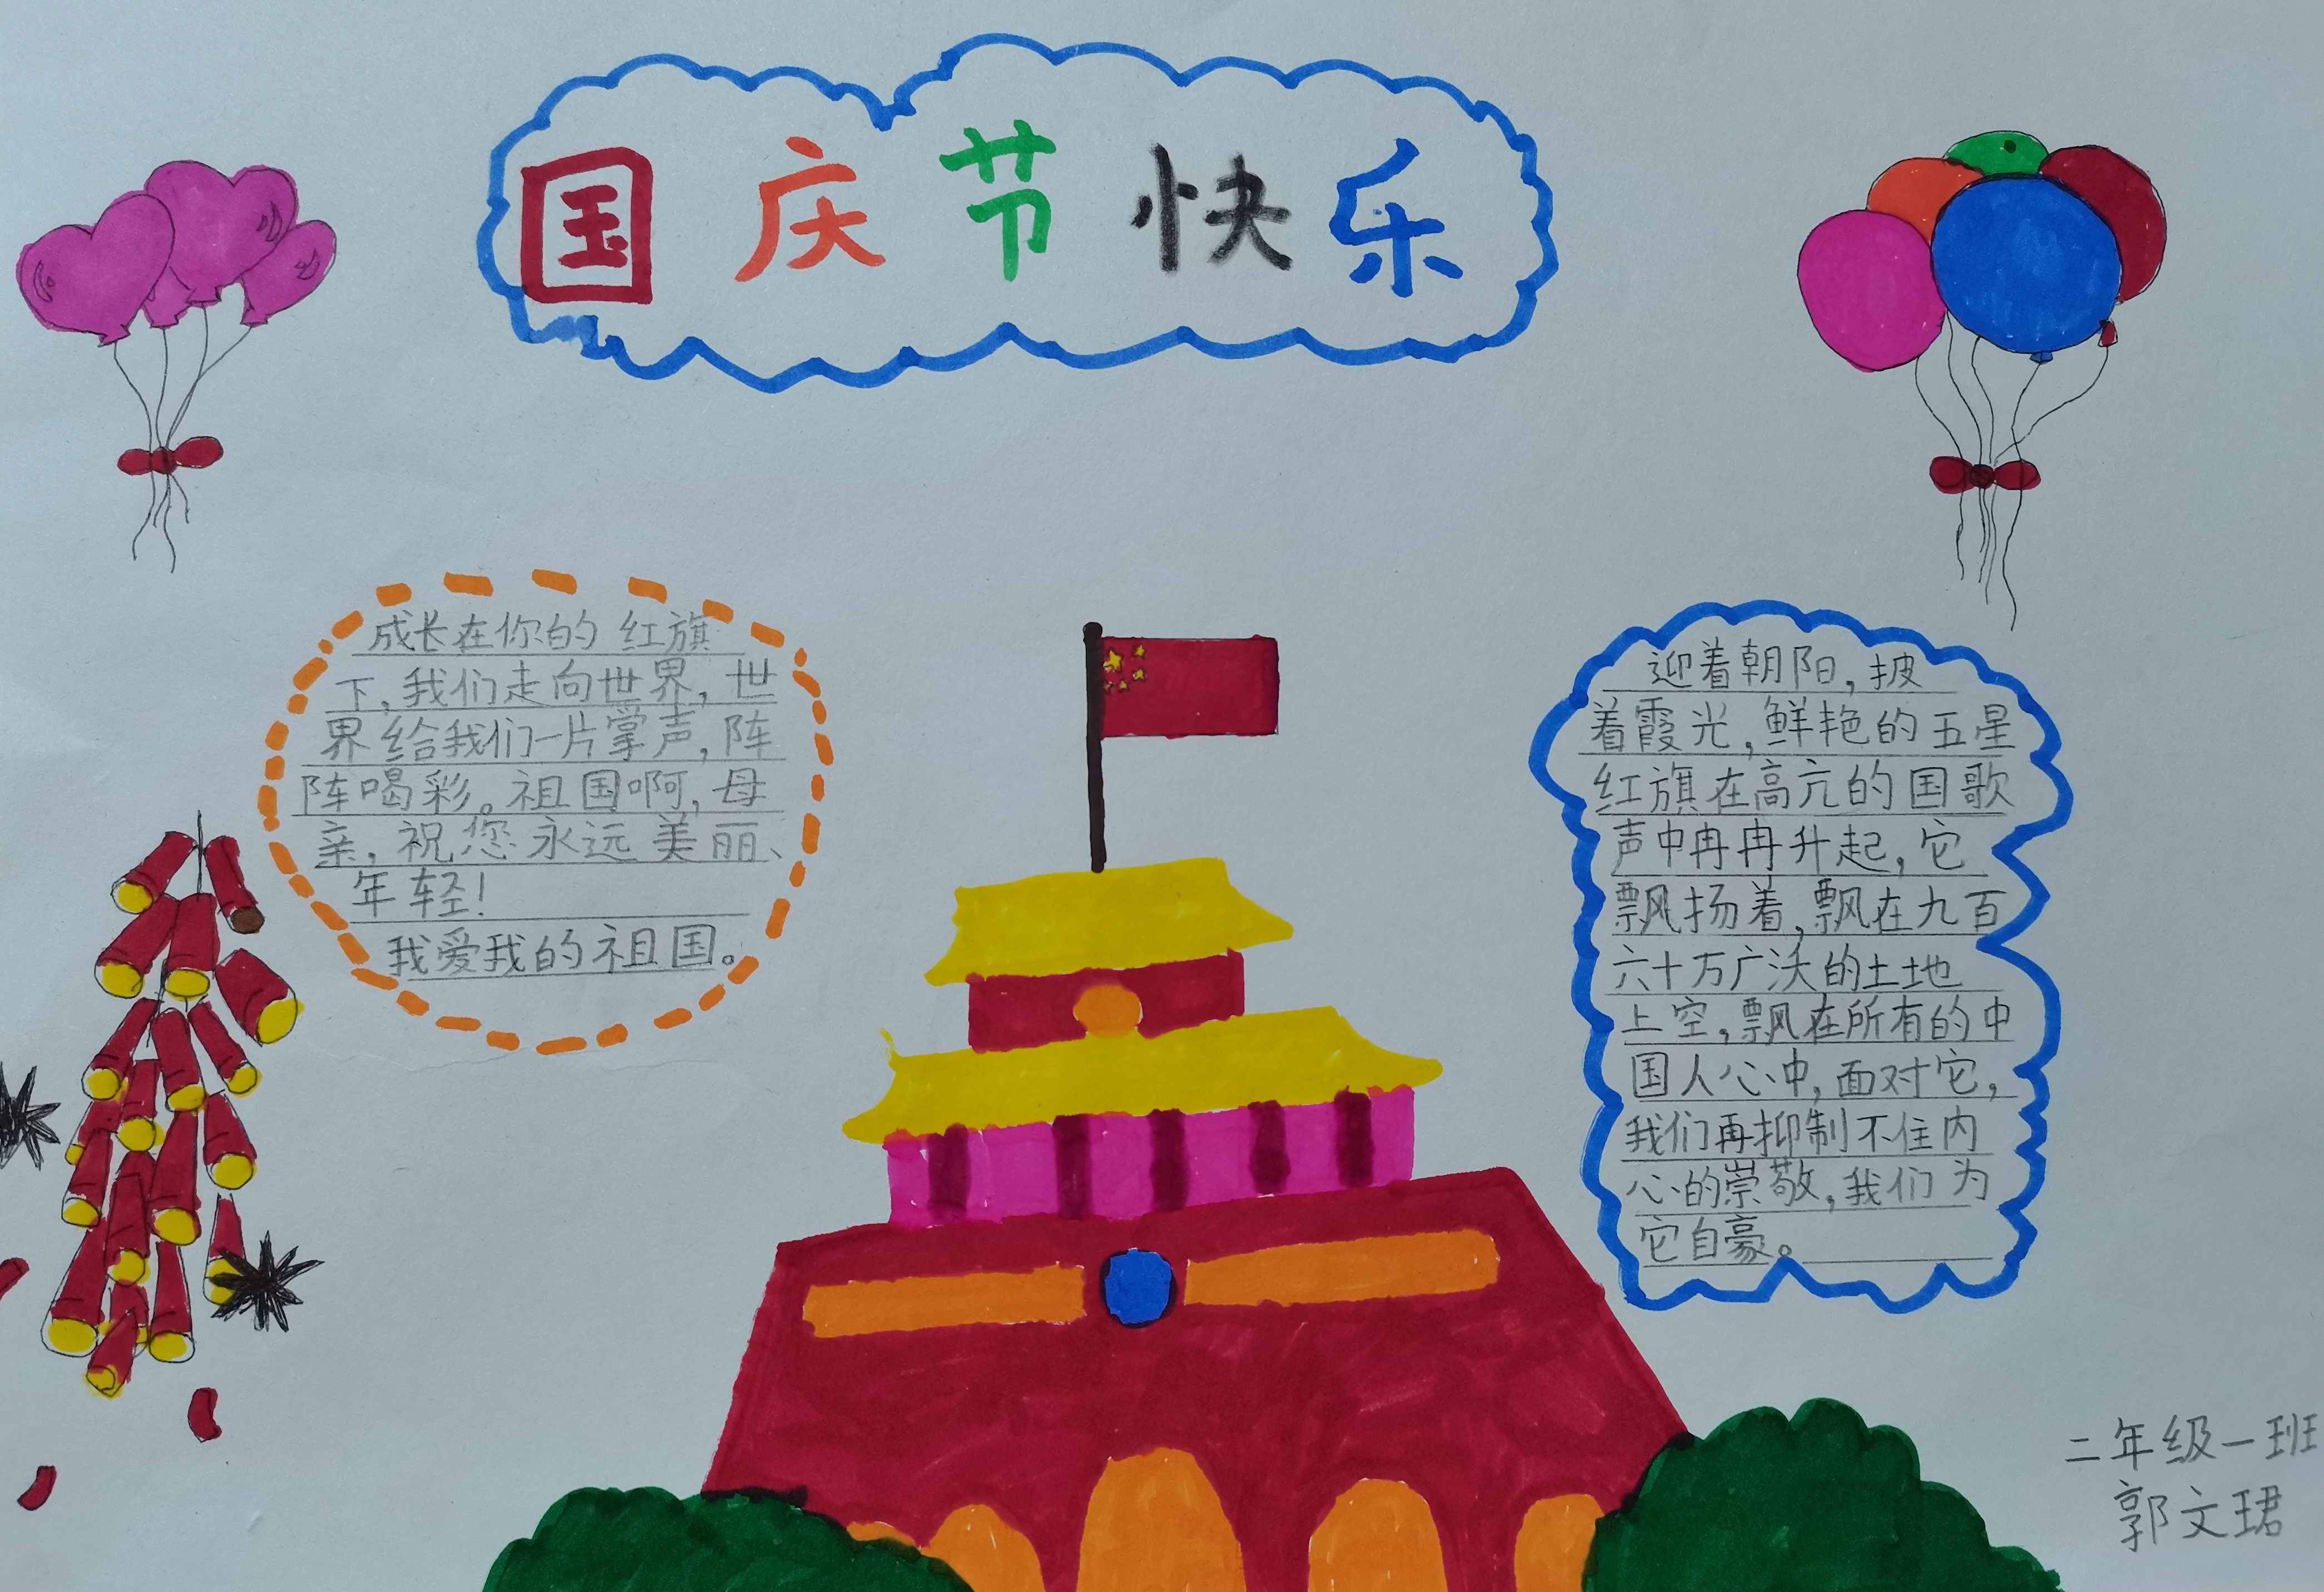 国庆节快乐
成长在你的红旗
下,我们走向世界,世
界给我们一片掌声,阵
阵喝彩。祖国啊,母
亲,祝您永远美丽、
年轻!
我爱我的祖国。
迎着朝阳,披
着霞光,鲜艳的五星
红旗在高亢的国歌
声中冉冉升起,它
飘扬着,飘在九百
六十万广沃的土地
上空,飘在所有的中
国人心中,面对它,
我们再抑制不住内
心的崇敬,我们为
它自豪。
二年级一班
郭文珺